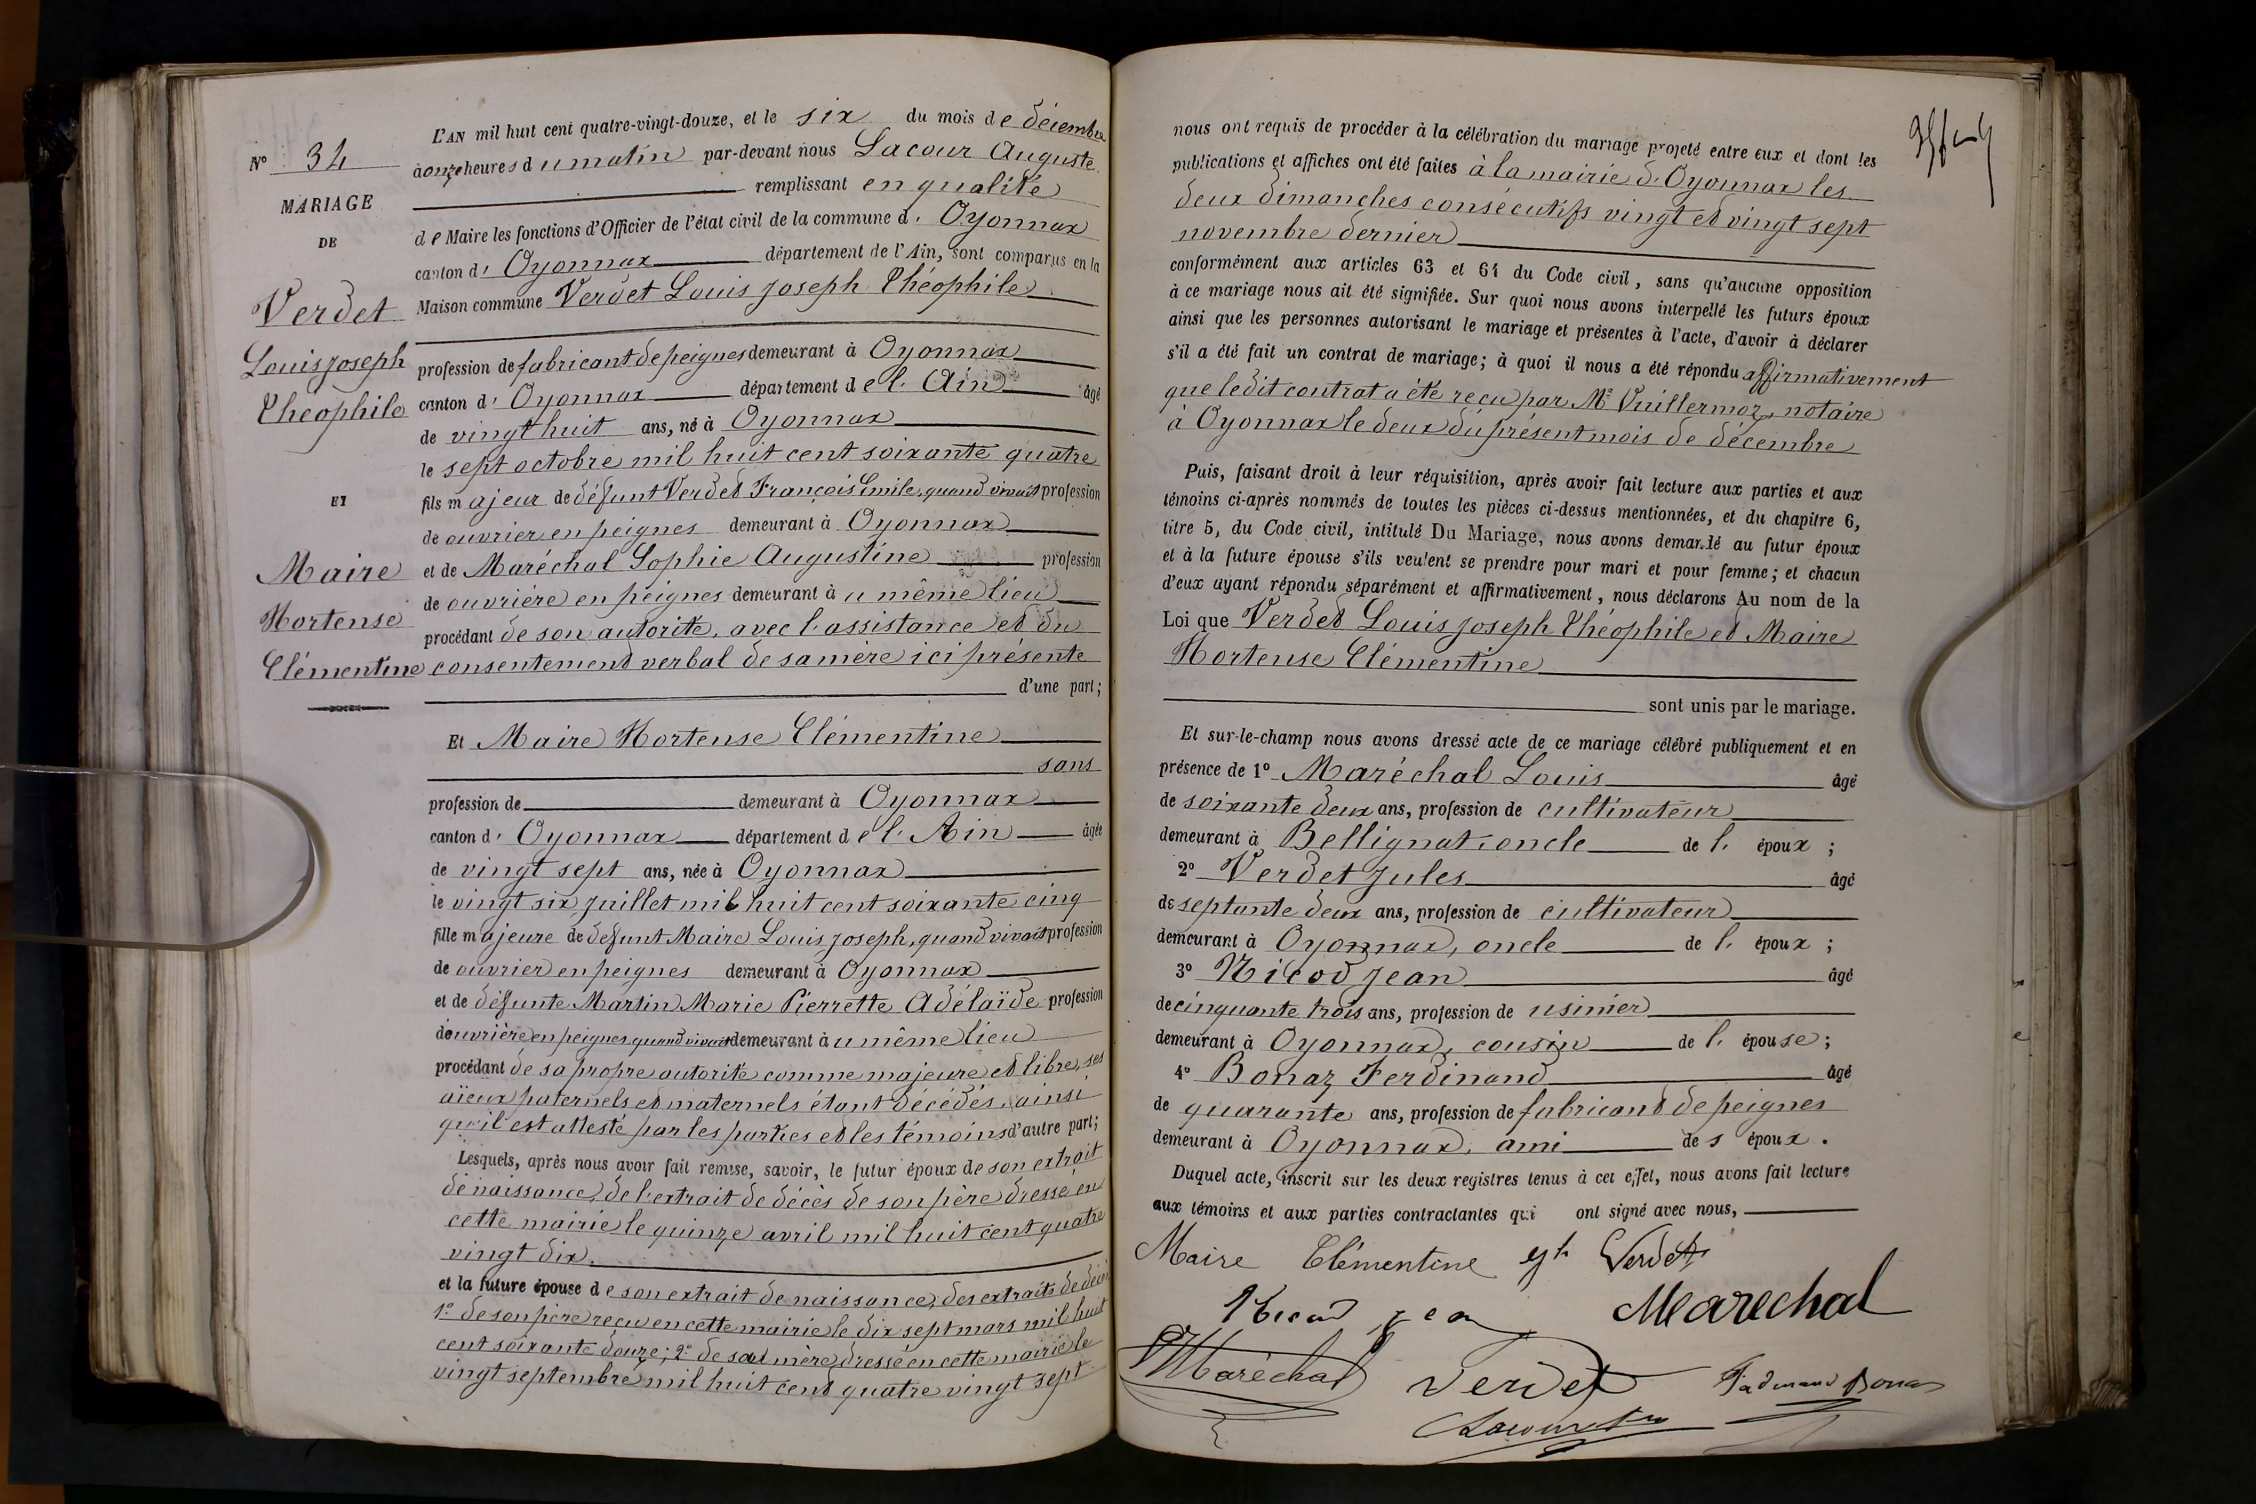 N° 34
MARIAGE
DE
Verdet
Louis Joseph
Théophile
ET
Maire
Hortense
Clémentine
L'AN mil huit cent quatre-vingt-douze, et le six du mois de décembre
à onze heures du matin par-devant nous Lacour Auguste
remplissant en qualité
de Maire les fonctions d'Officier de l'état civil de la commune d' Oyonnax
canton d' Oyonnax département de l'Ain, sont comparus en la
Maison commune Verdet Louis Joseph Théophile
profession de fabricant de peignes demeurant à Oyonnax
canton d' Oyonnax département de l'Ain âgé
de vingt huit ans, né à Oyonnax
le sept octobre mil huit cent soixante quatre
fils majeur de défunt Verdet François Emile, quand vivait profession
de ouvrier en peignes demeurant à Oyonnax
et de Maréchal Sophie Augustine profession
de ouvrière en peignes demeurant au même lieu
procédant de son autorité, avec l'assistance et du
consentement verbal de sa mère ici présente
d'une part;
Et Maire Hortense Clémentine
sans
profession de demeurant à Oyonnax
canton d' Oyonnax département de l'Ain âgée
de vingt sept ans, née à Oyonnax
le vingt six juillet mil huit cent soixante cinq
fille majeure de défunt Maire Louis Joseph, quand vivait profession
de ouvrier en peignes demeurant à Oyonnax
et de défunte Martin Marie Pierrette Adélaïde profession
d'ouvrière en peignes quand vivait demeurant au même lieu
procédant de sa propre autorité comme majeure et libre, ses
aïeux paternels et maternels étant décédés, ainsi
qu'il est attesté par les parties et les témoins d'autre part;
Lesquels, après nous avoir fait remise, savoir, le futur époux de son extrait
de naissance, de l'extrait de décès de son père dressé en
cette mairie le quinze avril mil huit cent quatre
vingt dix.
et la future épouse de son extrait de naissance, des extraits de décès
1° de son père reçu en cette mairie le dix sept mars mil huit
cent soixante douze; 2° de sa mère, dressé en cette mairie le
vingt septembre mil huit cent quatre vingt sept
nous ont requis de procéder à la célébration du mariage projeté entre eux et dont les
publications et affiches ont été faites à la mairie d'Oyonnax les
deux dimanches consécutifs vingt et vingt sept
novembre dernier
conformément aux articles 63 et 64 du Code civil, sans qu'aucune opposition
à ce mariage nous ait été signifiée. Sur quoi nous avons interpellé les futurs époux
ainsi que les personnes autorisant le mariage et présentes à l'acte, d'avoir à déclarer
s'il a été fait un contrat de mariage; à quoi il nous a été répondu affirmativement
que ledit contrat a été reçu par Me Vuillermoz, notaire
à Oyonnax le deux du présent mois de décembre
Puis, faisant droit à leur réquisition, après avoir fait lecture aux parties et aux
témoins ci-après nommés de toutes les pièces ci-dessus mentionnées, et du chapitre 6,
titre 5, du Code civil, intitulé Du Mariage, nous avons demandé au futur époux
et à la future épouse s'ils veulent se prendre pour mari et pour femme; et chacun
d'eux ayant répondu séparément et affirmativement, nous déclarons Au nom de la
Loi que Verdet Louis Joseph Théophile et Maire
Hortense Clémentine
sont unis par le mariage.
Et sur-le-champ nous avons dressé acte de ce mariage célébré publiquement et en
présence de 1° Maréchal Louis âgé
de soixante deux ans, profession de cultivateur
demeurant à Bellignat, oncle de l'époux;
2° Verdet Jules âgé
de septante deux ans, profession de cultivateur
demeurant à Oyonnax, oncle de l'époux;
3° Nicod Jean âgé
de cinquante trois ans, profession de usinier
demeurant à Oyonnax, cousin de l'épouse;
4° Bonaz Ferdinand âgé
de quarante ans, profession de fabricant de peignes
demeurant à Oyonnax, ami des époux.
Duquel acte, inscrit sur les deux registres tenus à cet effet, nous avons fait lecture
aux témoins et aux parties contractantes qui ont signé avec nous,
Maire Clémentine Verdet
Nicod Jean Marechal
Maréchal Verdet Ferdinand Bonaz
Lacour